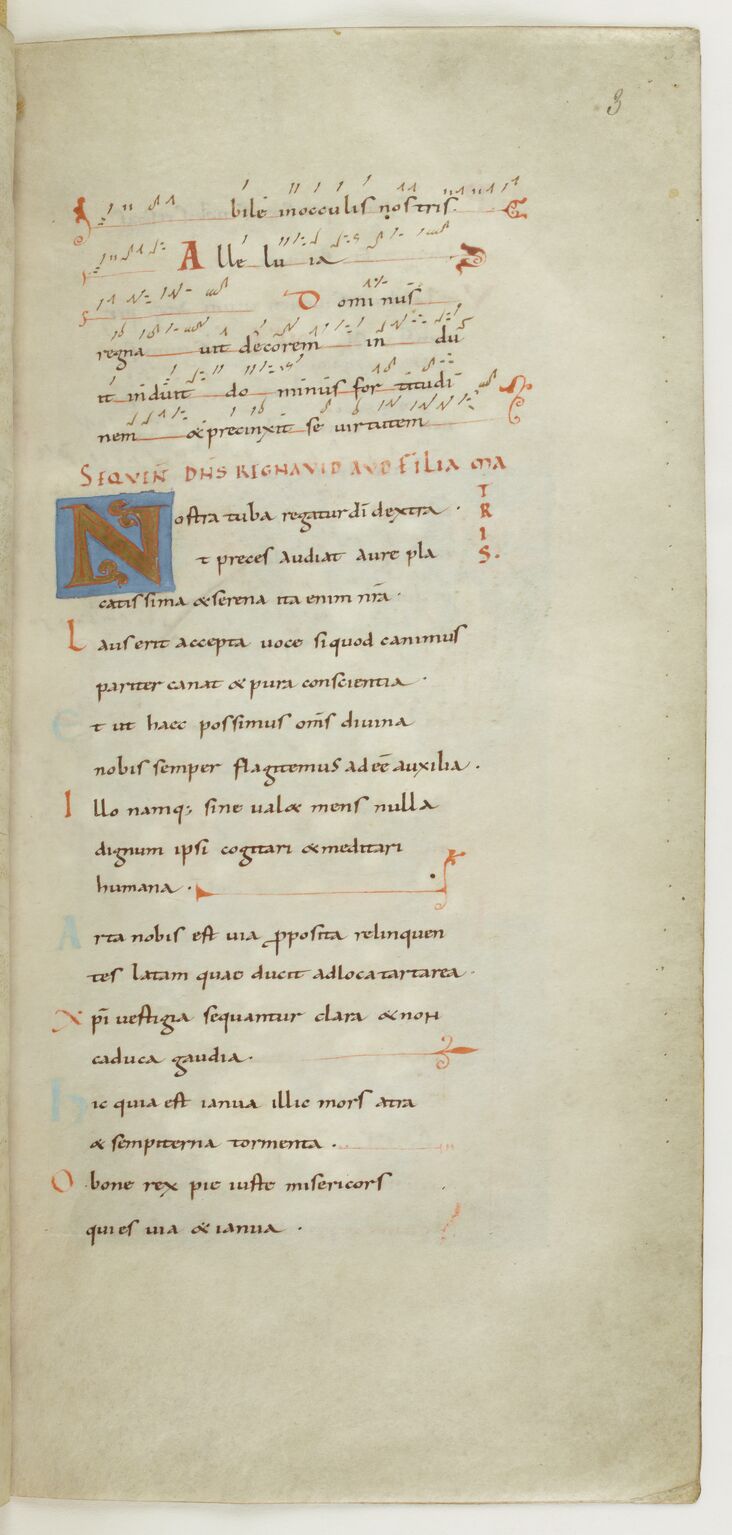 3
bile inocculis nostris.
Alle lu ia
Dominus
regna uit decorem in du
it induit do minus for titudi
nem &precinxit se uirtutem
SEQVEN̄ DN̄S REGNAVID AVD FILIA MA
TRIS.
Nostra tuba regatur di dextra ·
t preces audiat aure pla
catissima &serena ita enim nr̄a ·
Laus erit accepta uoce siquod canimus
pariter canat & pura conscientia ·
et ut haec possimus om̄s diuina
nobis semper flagitemus adeē auxilia .
Illo namq; sine ual& mens nulla
dignum ipsi cogitari &meditari
humana ·
Arta nobis est uia p̱posita relinquen
tes latam quae ducit adloca tartarea ·
Xp̄i uestigia sequantur clara & non
caduca gaudia ·
hic quia est ianua illic mors atra
& sempiterna tormenta .
O bone rex pie iuste misericors
qui es uia & ianua ·